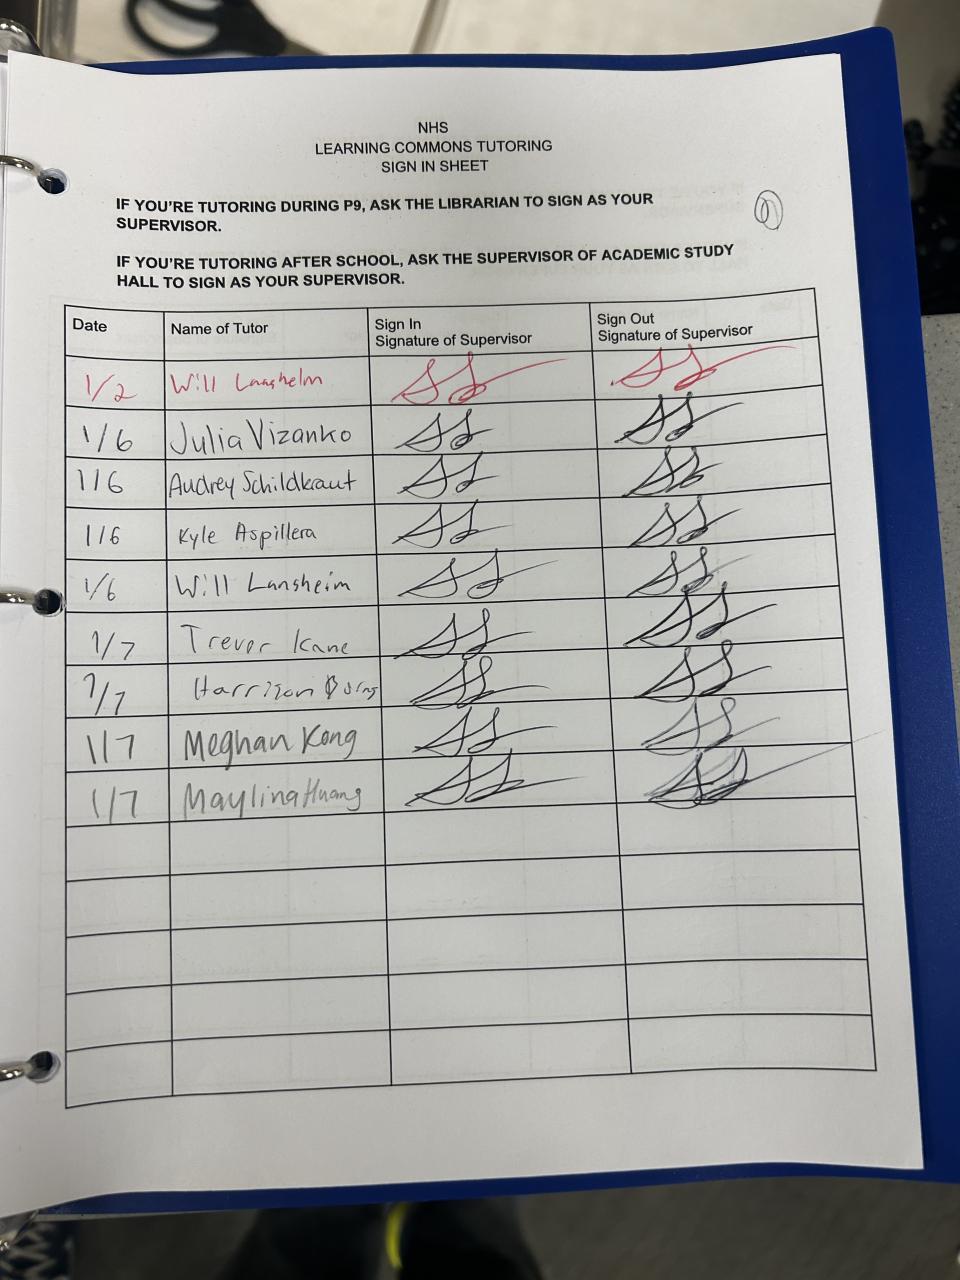 NHS
LEARNING COMMONS TUTORING
SIGN IN SHEET
IF YOU'RE TUTORING DURING P9, ASK THE LIBRARIAN TO SIGN AS YOUR
SUPERVISOR.
IF YOU'RE TUTORING AFTER SCHOOL, ASK THE SUPERVISOR OF ACADEMIC STUDY
HALL TO SIGN AS YOUR SUPERVISOR.
Date Name of Tutor Sign In Signature of Supervisor Sign Out Signature of Supervisor
1/2 Will Lansheim
1/6 Julia Vizanko
1/6 Audrey Schildkraut
1/6 Kyle Aspillera
1/6 Will Lansheim
1/7 Trevor Kane
1/7 Harrison
1/7 Meghan Kong
1/7 Maylina Huang